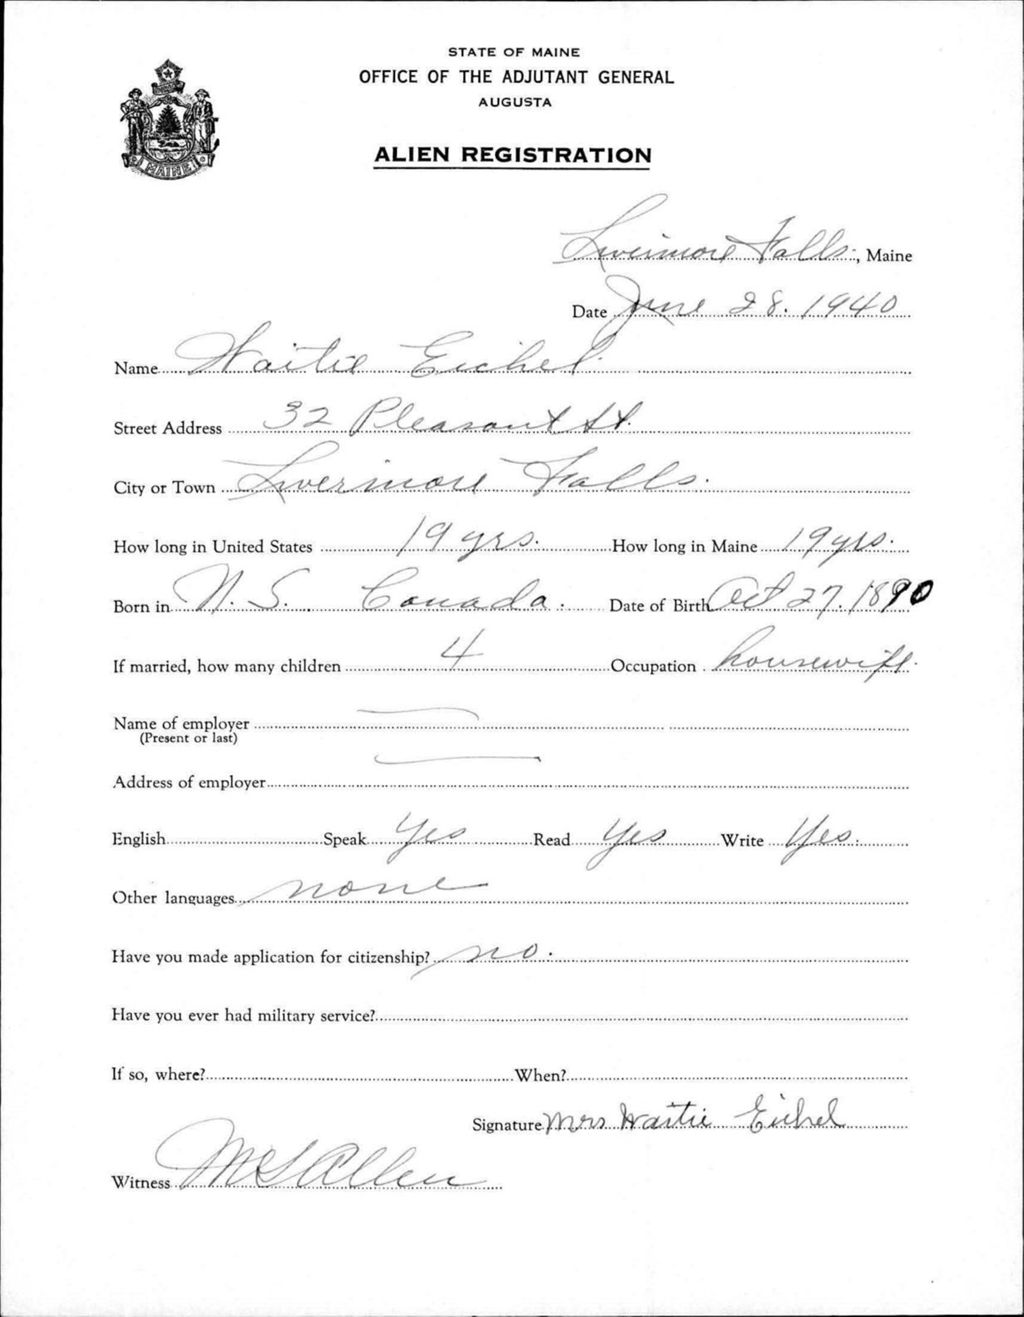 STATE OF MAINE
OFFICE OF THE ADJUTANT GENERAL
AUGUSTA
ALIEN REGISTRATION
MAINE
Livermore Falls, Maine
Date June 28. 1940
Name Waitie Eichel
Street Address 32 Pleasant St.
City or Town Livermore Falls.
How long in United States 19 yrs. How long in Maine 19 yrs.
Born in N. S. Canada. Date of Birth Oct 27. 1890
If married, how many children 4 Occupation housewife.
Name of employer
(Present or last)
Address of employer
English Speak Yes Read Yes Write Yes.
Other languages none
Have you made application for citizenship? no.
Have you ever had military service?
If so, where? When?
Signature Mrs Waitie Eichel
Witness Allen